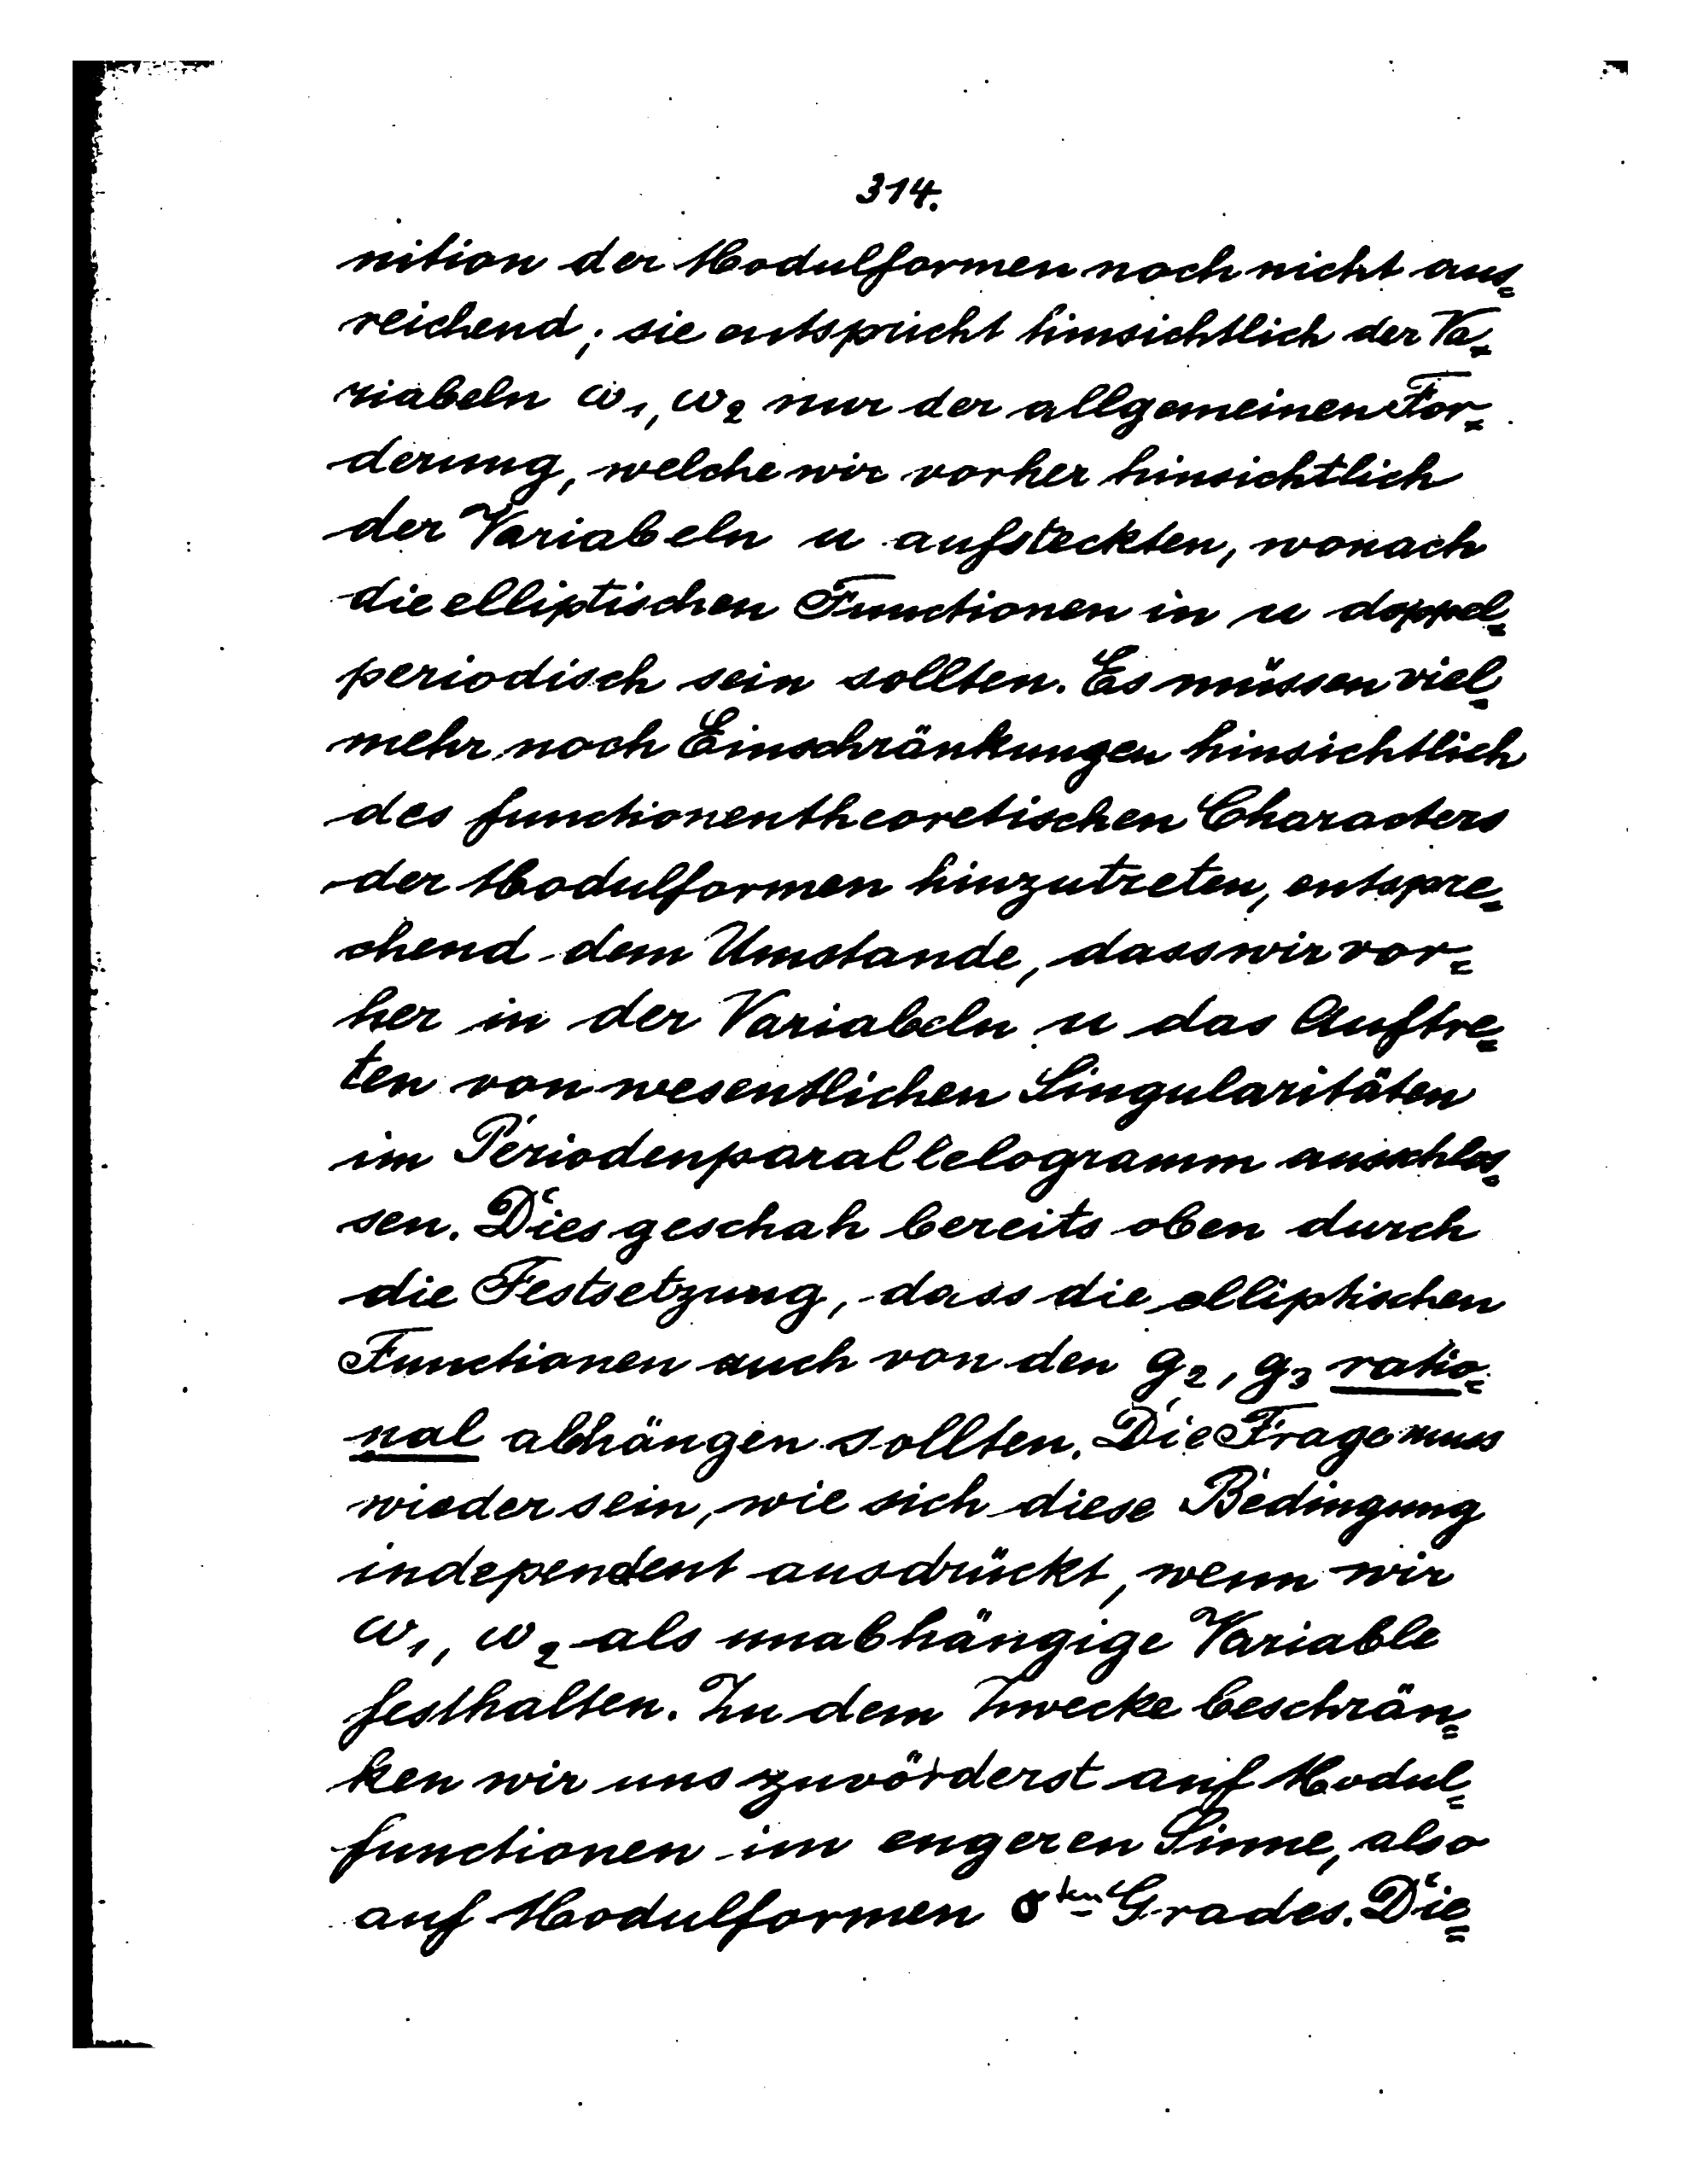 314.
nition der Modulformen noch nicht aus=
reichend; sie entspricht hinsichtlich der Va=
riabeln ω₁, ω₂ nur der allgemeinen For=
derung, welche wir vorher hinsichtlich
der Variabeln u aufsteckten, wonach
die elliptischen Functionen in u doppel=
periodisch sein sollten. Es müssen viel=
mehr noch Einschränkungen hinsichtlich
des functionentheoretischen Characters
der Modulformen hinzutreten, entspre=
chend dem Umstande, dass wir vor=
her in der Variabeln u das Auftre=
ten von wesentlichen Singularitäten
im Periodenparallelogramm ausschlos=
sen. Dies geschah bereits oben durch
die Festsetzung, dass die elliptischen
Functionen auch von den g₂, g₃ ratio=
nal abhängen sollten. Die Frage muss
wieder sein, wie sich diese Bedingung
independent ausdrückt, wenn wir
ω₁, ω₂ als unabhängige Variable
festhalten. Zu dem Zwecke beschrän=
ken wir uns zuvörderst auf Modul=
functionen im engeren Sinne, also
auf Modulformen 0ten Grades. Die=